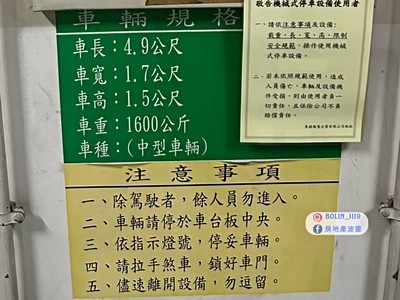 車輛規格
車長：4.9公尺
車寬：1.7公尺
車高：1.5公尺
車重：1600公斤
車種：(中型車輛)
敬告機械式停車設備使用者
一、請依注意事項及設備：
載重，長，寬，高，限制
安全規範，操作使用機械
式停車設備。
二、若未依照規範使用，造成
人員傷亡，車輛及設備機
件受損，則由使用者負一
切責任，並保險公司不負
賠償責任。
注意事項
一、除駕駛者，餘人員勿進入。
二、車輛請停於車台板中央。
三、依指示燈號，停妥車輛。
四、請拉手煞車，鎖好車門。
五、儘速離開設備，勿逗留。
BOLIN_1119
房地產波靈